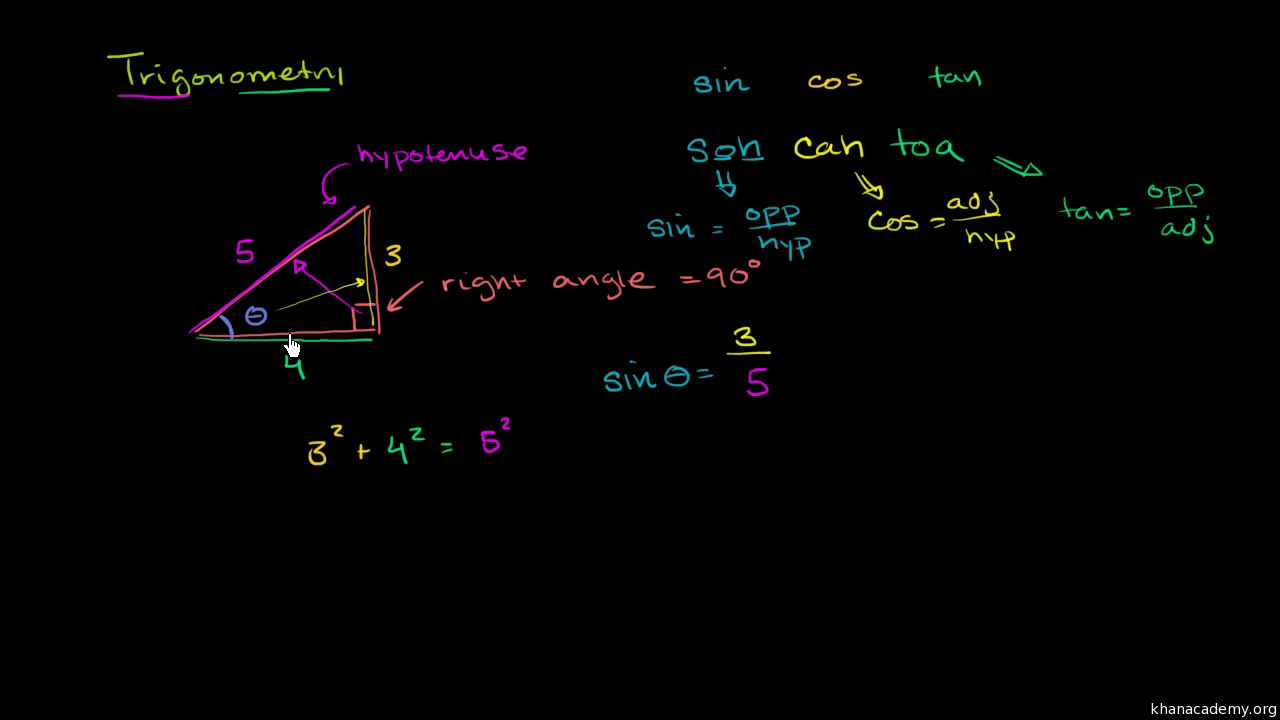 Trigonometry
sin cos tan
hypotenuse
soh cah toa
sin = opp/hyp
cos = adj/hyp
tan = opp/adj
5
3
right angle = 90°
θ
4
sin θ = 3/5
3² + 4² = 5²
khanacademy.org